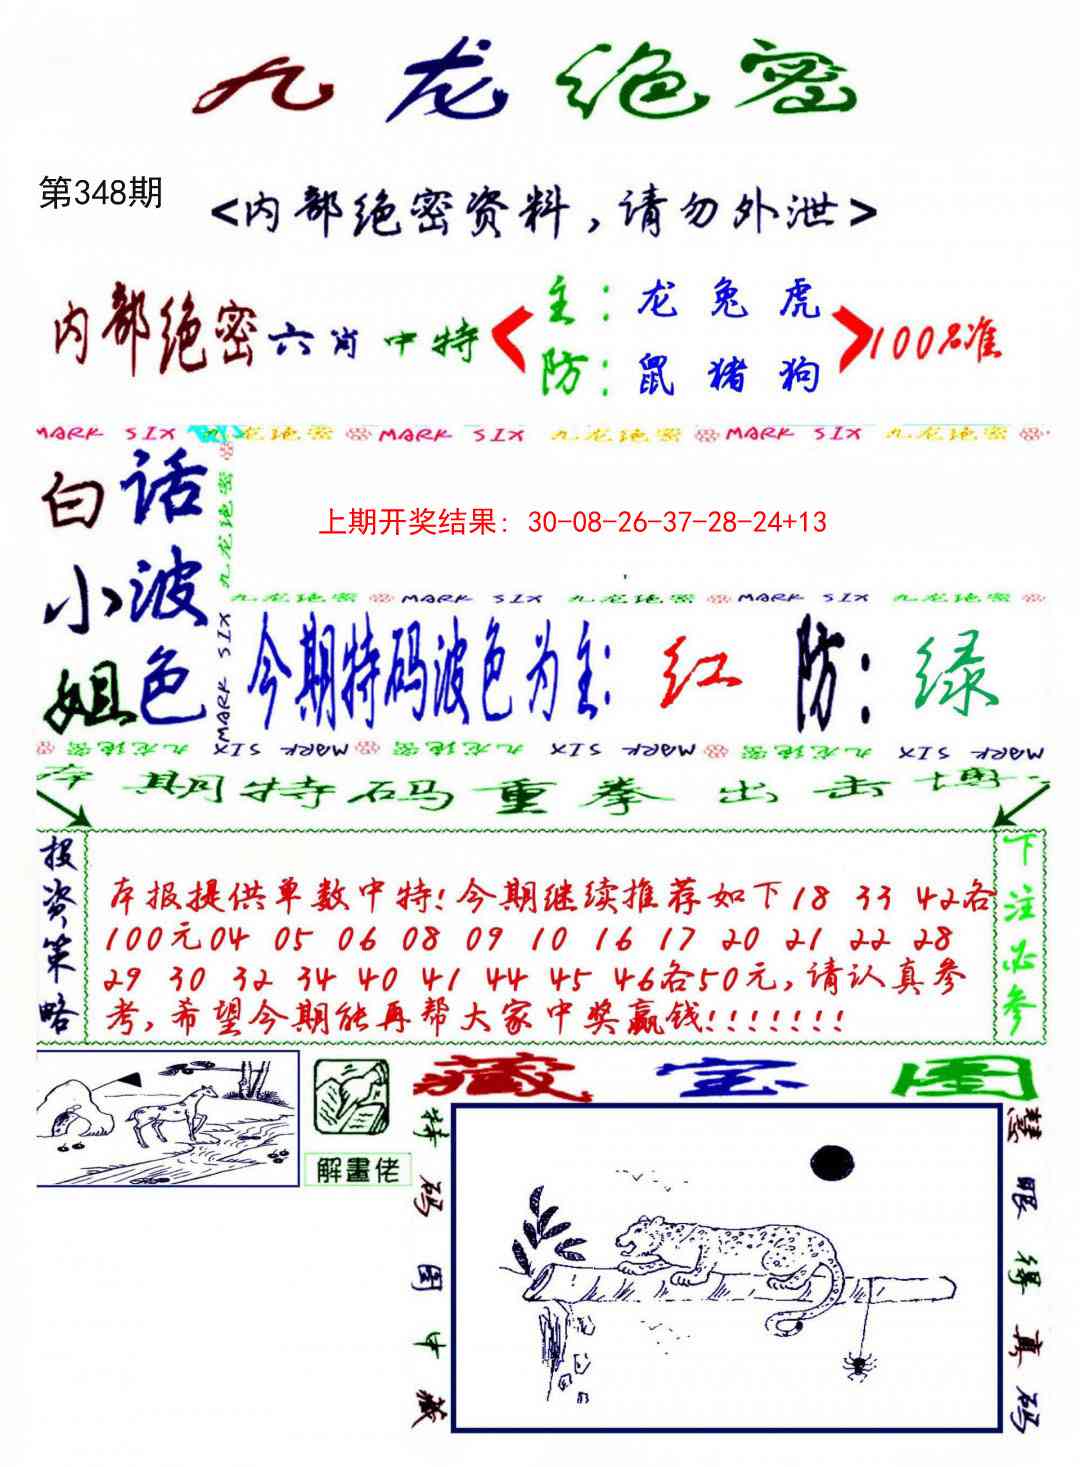 九龙绝密
第348期
<内部绝密资料,请勿外泄>
内部绝密六肖中特
主:龙 兔 虎
防:鼠 猪 狗
100%准
MARK SIX 九龙绝密 MARK SIX 九龙绝密 MARK SIX 九龙绝密
白小姐
话波色
九龙绝密
MARK SIX
上期开奖结果: 30-08-26-37-28-24+13
九龙绝密 MARK SIX 九龙绝密 MARK SIX 九龙绝密
今期特码波色为主: 红 防: 绿
九龙绝密 MARK SIX 九龙绝密 MARK SIX 九龙绝密 MARK SIX
本期特码重拳出击博
投资策略
本报提供单数中特!今期继续推荐如下18 33 42各
100元04 05 06 08 09 10 16 17 20 21 22 28
29 30 32 34 40 41 44 45 46各50元,请认真参
考,希望今期能再帮大家中奖赢钱!!!!!!!
下注必参
解畫佬
藏宝图
特码图中藏
慧眼得真码